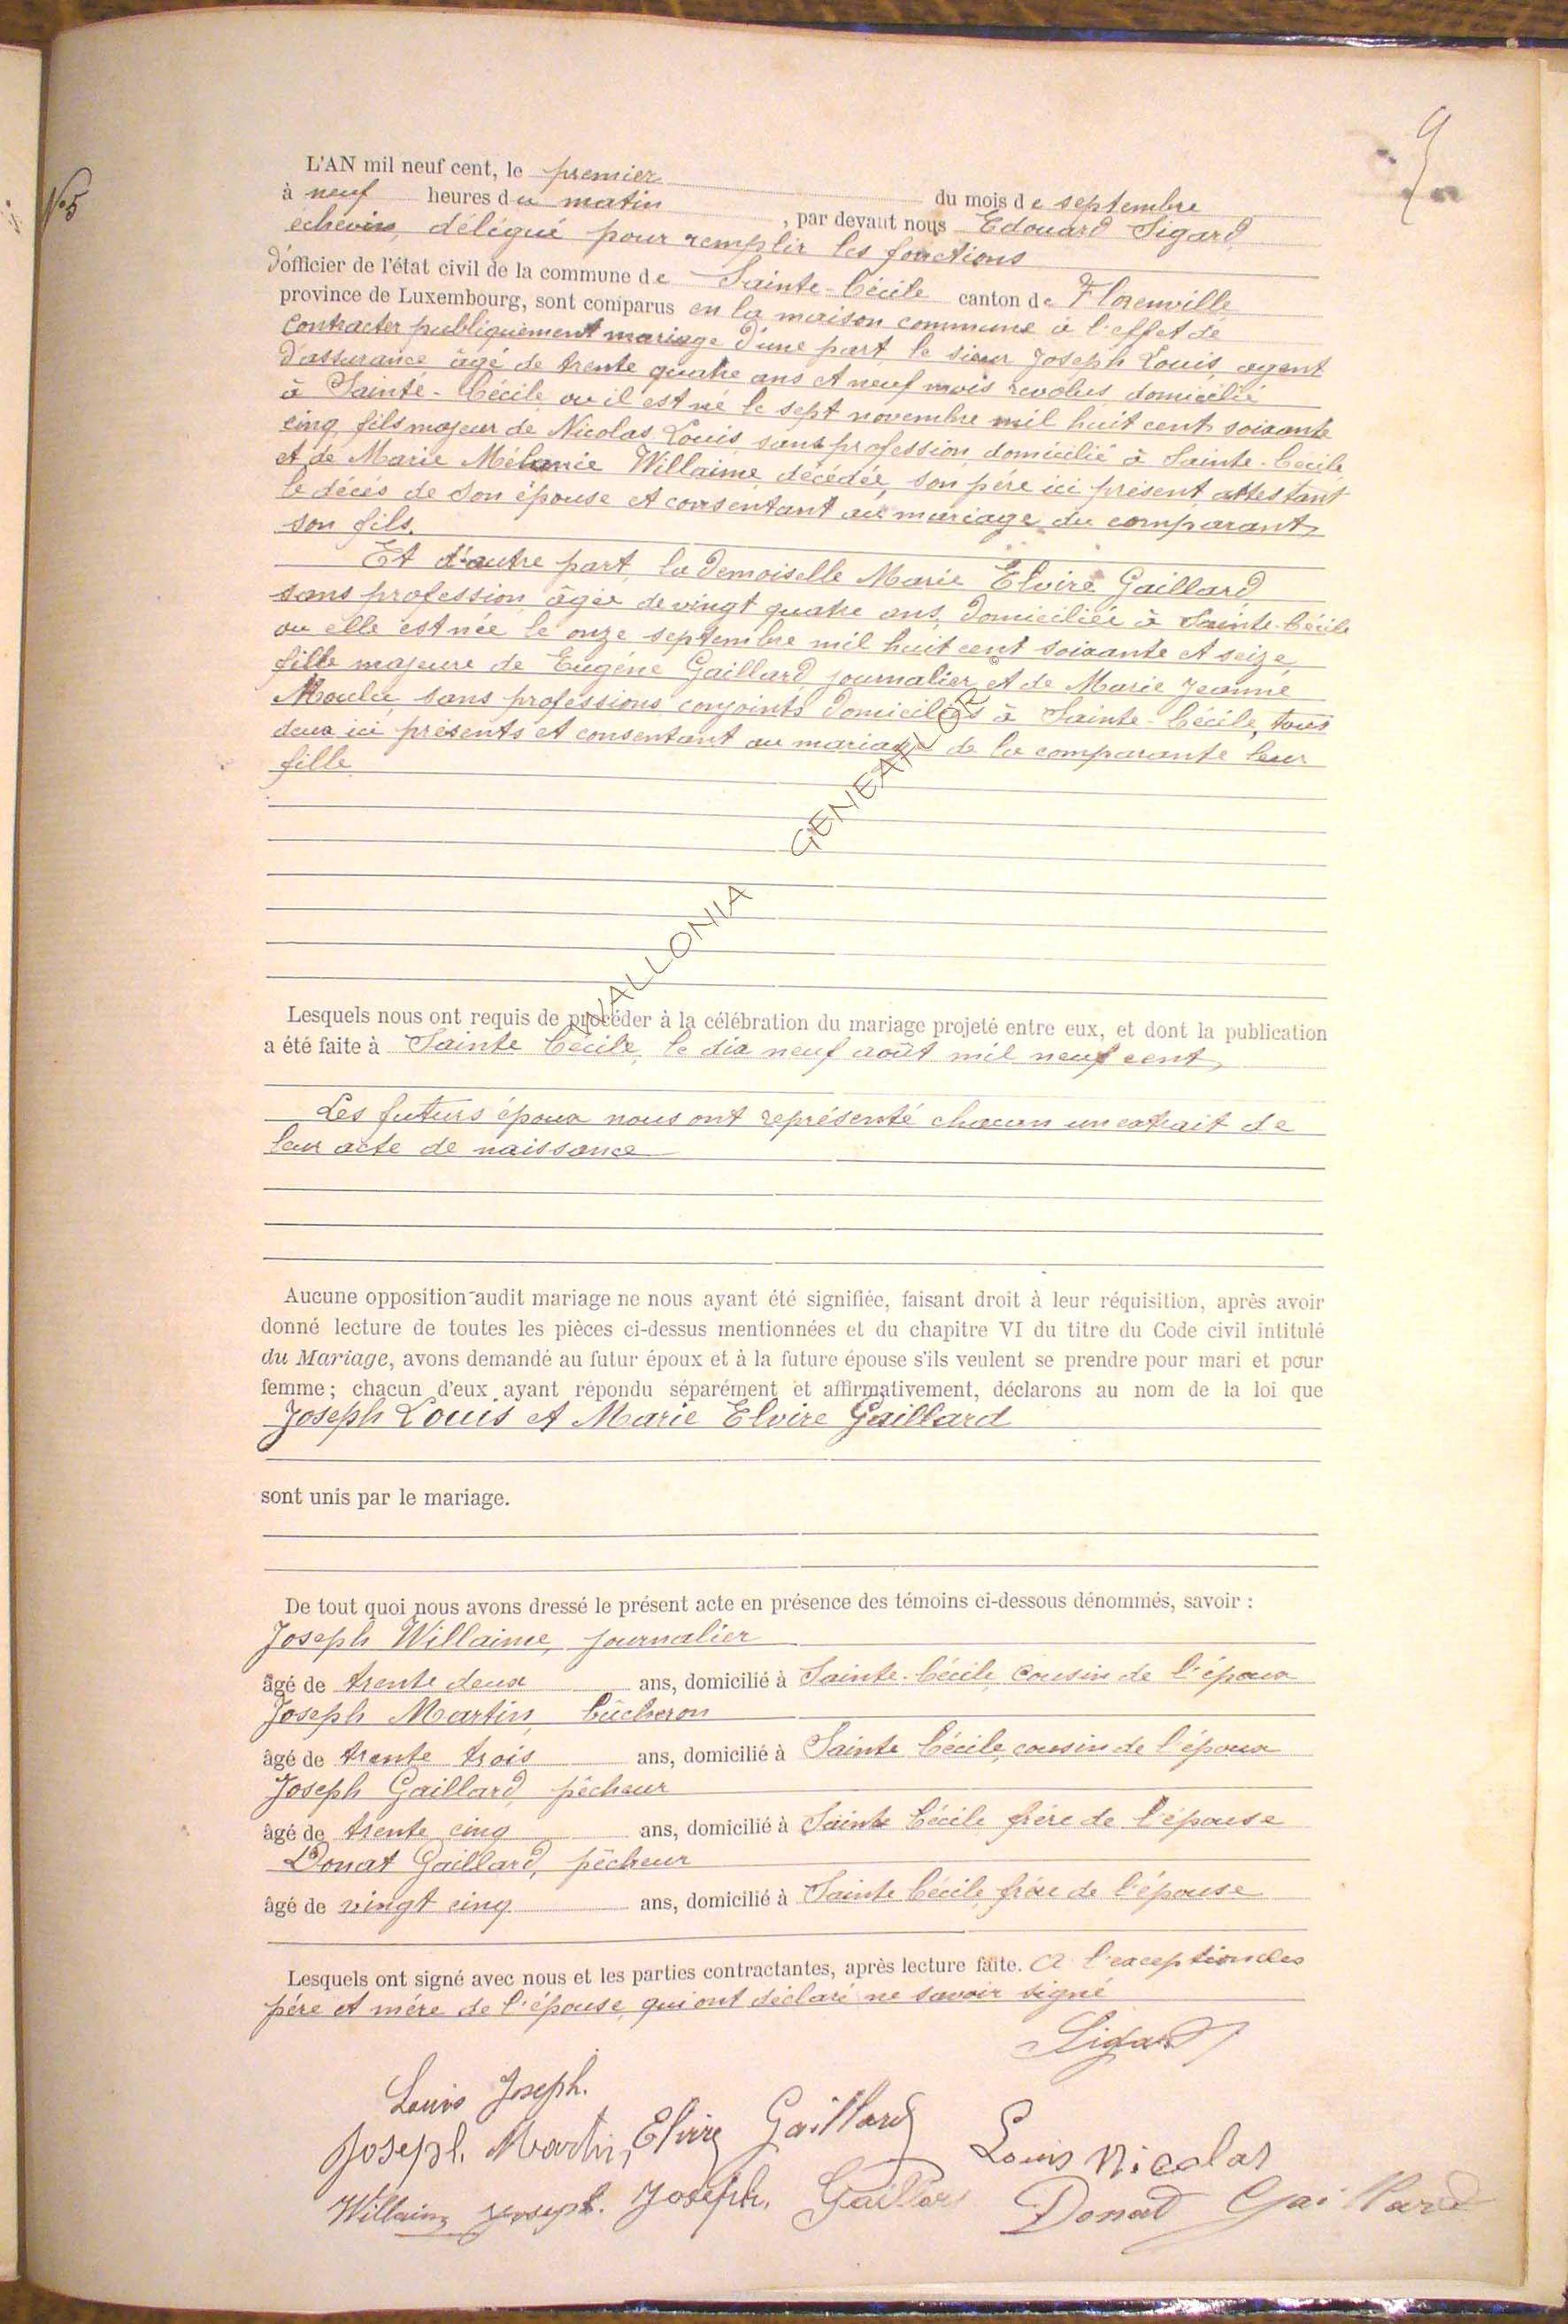 9
N° 5
L'AN mil neuf cent, le premier du mois de septembre
à neuf heures du matin, par devant nous Edouard Sigard
échevin, délégué pour remplir les fonctions
d'officier de l'état civil de la commune de Sainte-Cécile canton de Florenville
province de Luxembourg, sont comparus en la maison commune à l'effet de
contracter publiquement mariage d'une part, le sieur Joseph Louis, agent
d'assurance âgé de trente quatre ans et neuf mois révolus domicilié
à Sainte-Cécile ou il est né le sept novembre mil huit cent soixante
cinq, fils majeur de Nicolas Louis, sans profession, domicilié à Sainte-Cécile
et de Marie Mélanie Willaime, décédée, son père ici présent attestant
le décès de son épouse et consentant au mariage du comparant,
son fils.
Et d'autre part, la demoiselle Marie Elvire Gaillard
sans profession âgée de vingt quatre ans, domiciliée à Sainte-Cécile
ou elle est née le onze septembre mil huit cent soixante et seize,
fille majeure de Eugène Gaillard journalier et de Marie Jeanne
sans professions conjoints domiciliés à Sainte-Cécile, tous
deux ici présents et consentant au mariage de la comparante leur
fille
© WALLONIA GENEAFLOR
Lesquels nous ont requis de procéder à la célébration du mariage projeté entre eux, et dont la publication
a été faite à Sainte Cécile, le dix neuf août mil neuf cent,
Les futurs époux nous ont représenté chacun un extrait de
leur acte de naissance
Aucune opposition audit mariage ne nous ayant été signifiée, faisant droit à leur réquisition, après avoir
donné lecture de toutes les pièces ci-dessus mentionnées et du chapitre VI du titre du Code civil intitulé
du Mariage, avons demandé au futur époux et à la future épouse s'ils veulent se prendre pour mari et pour
femme ; chacun d'eux ayant répondu séparément et affirmativement, déclarons au nom de la loi que
Joseph Louis et Marie Elvire Gaillard
sont unis par le mariage.
De tout quoi nous avons dressé le présent acte en présence des témoins ci-dessous dénommés, savoir :
Joseph Willaime, journalier
âgé de trente deux ans, domicilié à Sainte-Cécile, cousin de l'époux
Joseph Martin, bûcheron
âgé de trente trois ans, domicilié à Sainte Cécile, cousin de l'époux
Joseph Gaillard, pêcheur
âgé de trente cinq ans, domicilié à Sainte Cécile frère de l'épouse
Donat Gaillard, pêcheur
âgé de vingt cinq ans, domicilié à Sainte Cécile, frère de l'épouse
Lesquels ont signé avec nous et les parties contractantes, après lecture faite. A l'exception des
père et mère de l'épouse, qui ont déclaré ne savoir signé
Sigard
Louis Joseph.
Joseph. Martin, Elvire Gaillard Louis Nicolas
Willaime Joseph. Joseph. Gaillard Donat Gaillard